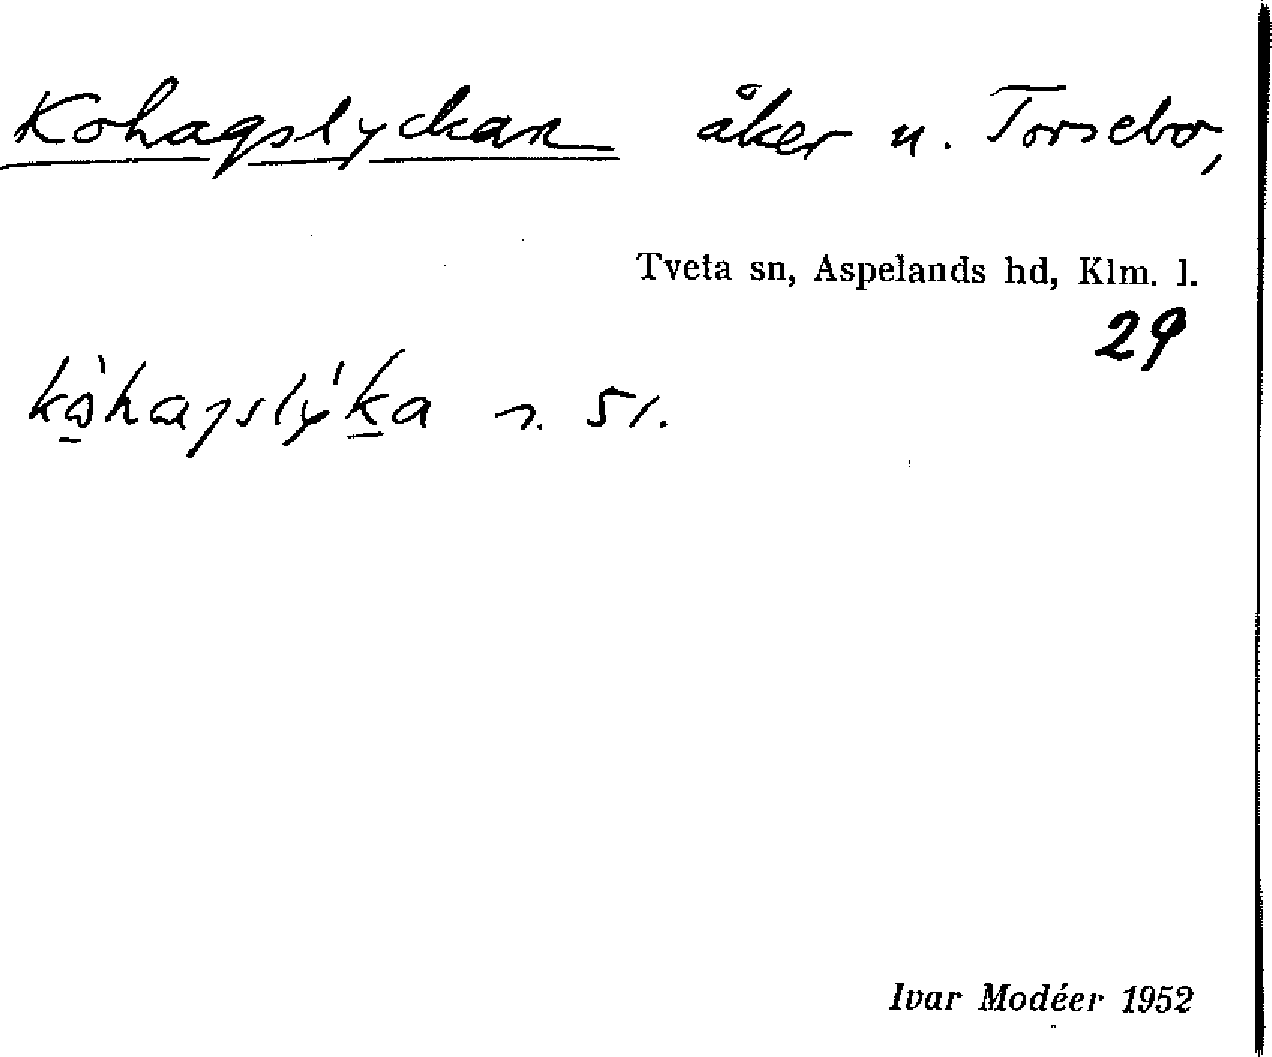 Kohagslyckan åker u. Torsebo,
Tveta sn, Aspelands hd, Klm. l.
29
s. 51.
Ivar Modéer 1952